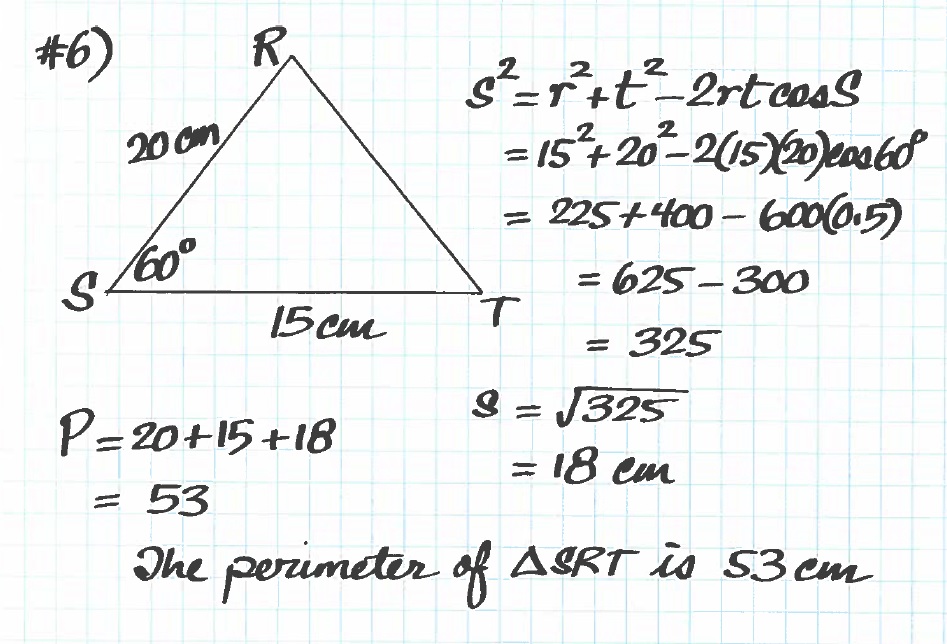 #6)
R
20 cm
S
60°
15 cm
T
s² = r² + t² - 2rt cos S
= 15² + 20² - 2(15)(20)cos 60°
= 225 + 400 - 600(0.5)
= 625 - 300
= 325
s = √325
= 18 cm
P = 20 + 15 + 18
= 53
The perimeter of △SRT is 53 cm